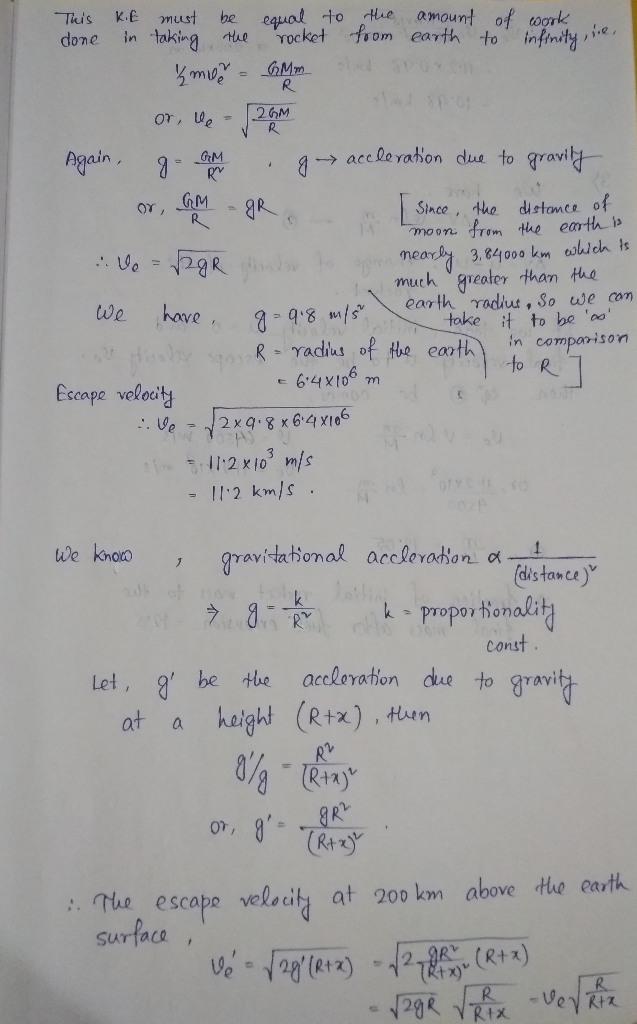 This K.E must be equal to the amount of work
done in taking the rocket from earth to infinity, i.e.
½mve² = GMm/R
or, ve = √(2GM/R)
Again, g = GM/R² , g → accleration due to gravity
or, GM/R = gR
∴ ve = √2gR
[Since, the distance of
moon from the earth is
nearly 3,84000 km which is
much greater than the
earth radius, So we can
take it to be '∞'
in comparison
to R]
We have, g = 9.8 m/s²
R = radius of the earth
= 6.4x10⁶ m
Escape velocity
∴ ve = √2x9.8x6.4x10⁶
= 11.2x10³ m/s
= 11.2 km/s.
We know , gravitational accleration α 1/(distance)²
⇒ g = k/R² k = proportionality
const.
Let, g' be the accleration due to gravity
at a height (R+x), then
g'/g = R²/(R+x)²
or, g' = gR²/(R+x)² .
∴ The escape velocity at 200 km above the earth
surface,
ve' = √2g'(R+x) = √2 gR²/(R+x)² (R+x)
= √2gR √R/R+x = ve√R/R+x